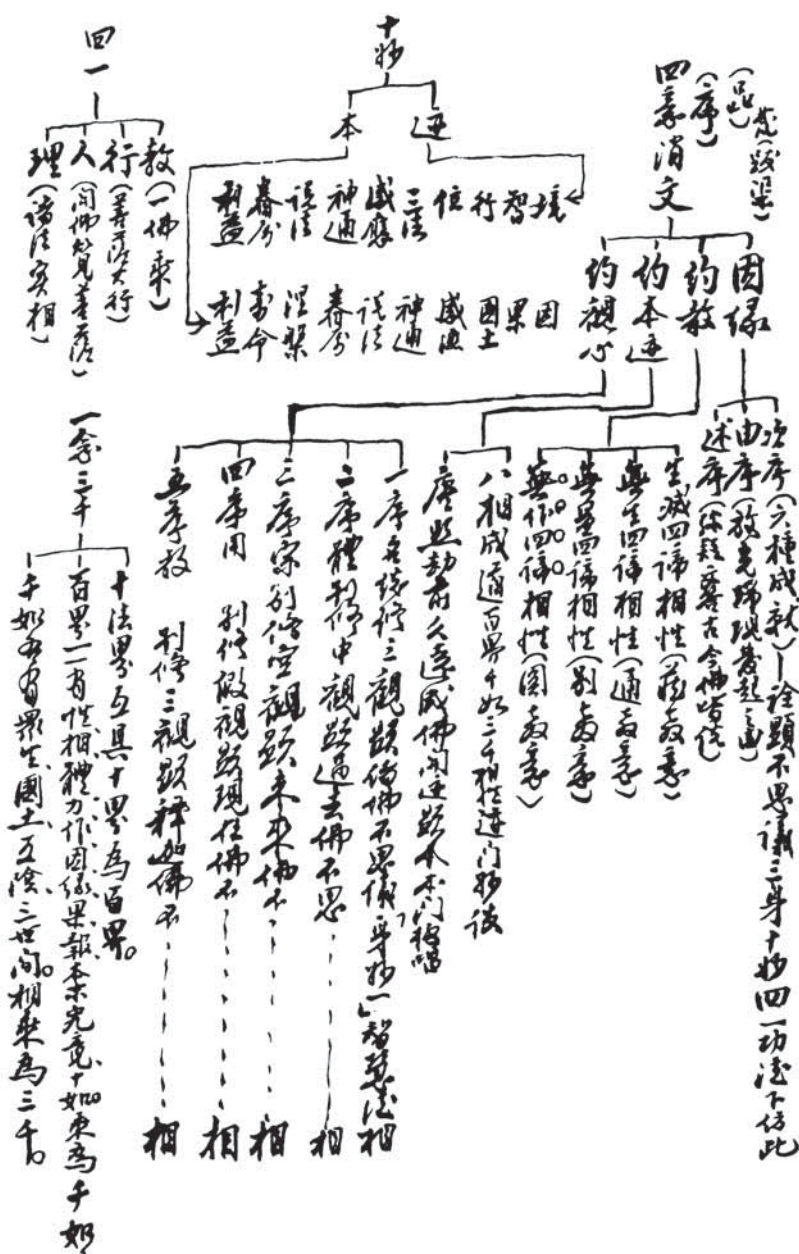 梵(跋渠)
(品)
(序)
四意消文
因緣
約教
約本迹
約觀心
次序(六種成就)—詮顯不思議三身十妙四一功德下仿此
由序(放光瑞現發起之由)
述序
生滅四諦相性(藏教意)
無生四諦相性(通教意)
無量四諦相性(別教意)
無作四諦相性(圓教意)
八相成道百界千如三千相性迹門妙談
塵點劫前久遠成佛開迹顯本本門獨唱
一序名總修三觀顯諸佛不思議
身妙
智慧德相
二序體別修中觀顯過去佛不思
相
三序宗別修空觀顯未來佛不
相
四序用 別修假觀顯現在佛不
相
五序教 別修三觀顯釋迦佛不
相
十妙
迹
本
境
智
行
位
三法
感應
神通
說法
眷屬
利益
因
果
國土
感應
神通
說法
眷屬
涅槃
壽命
利益
四一
教(一佛乘)
行(菩薩大行)
人(開佛知見菩薩)
理(諸法實相)
一念三千
十法界互具十界為百界。
百界一一有性、相、體、力、作、因、緣、果、報、本末究竟、十如。束為千如
千如各有眾生、國土、五陰、三世間。相乘為三千。